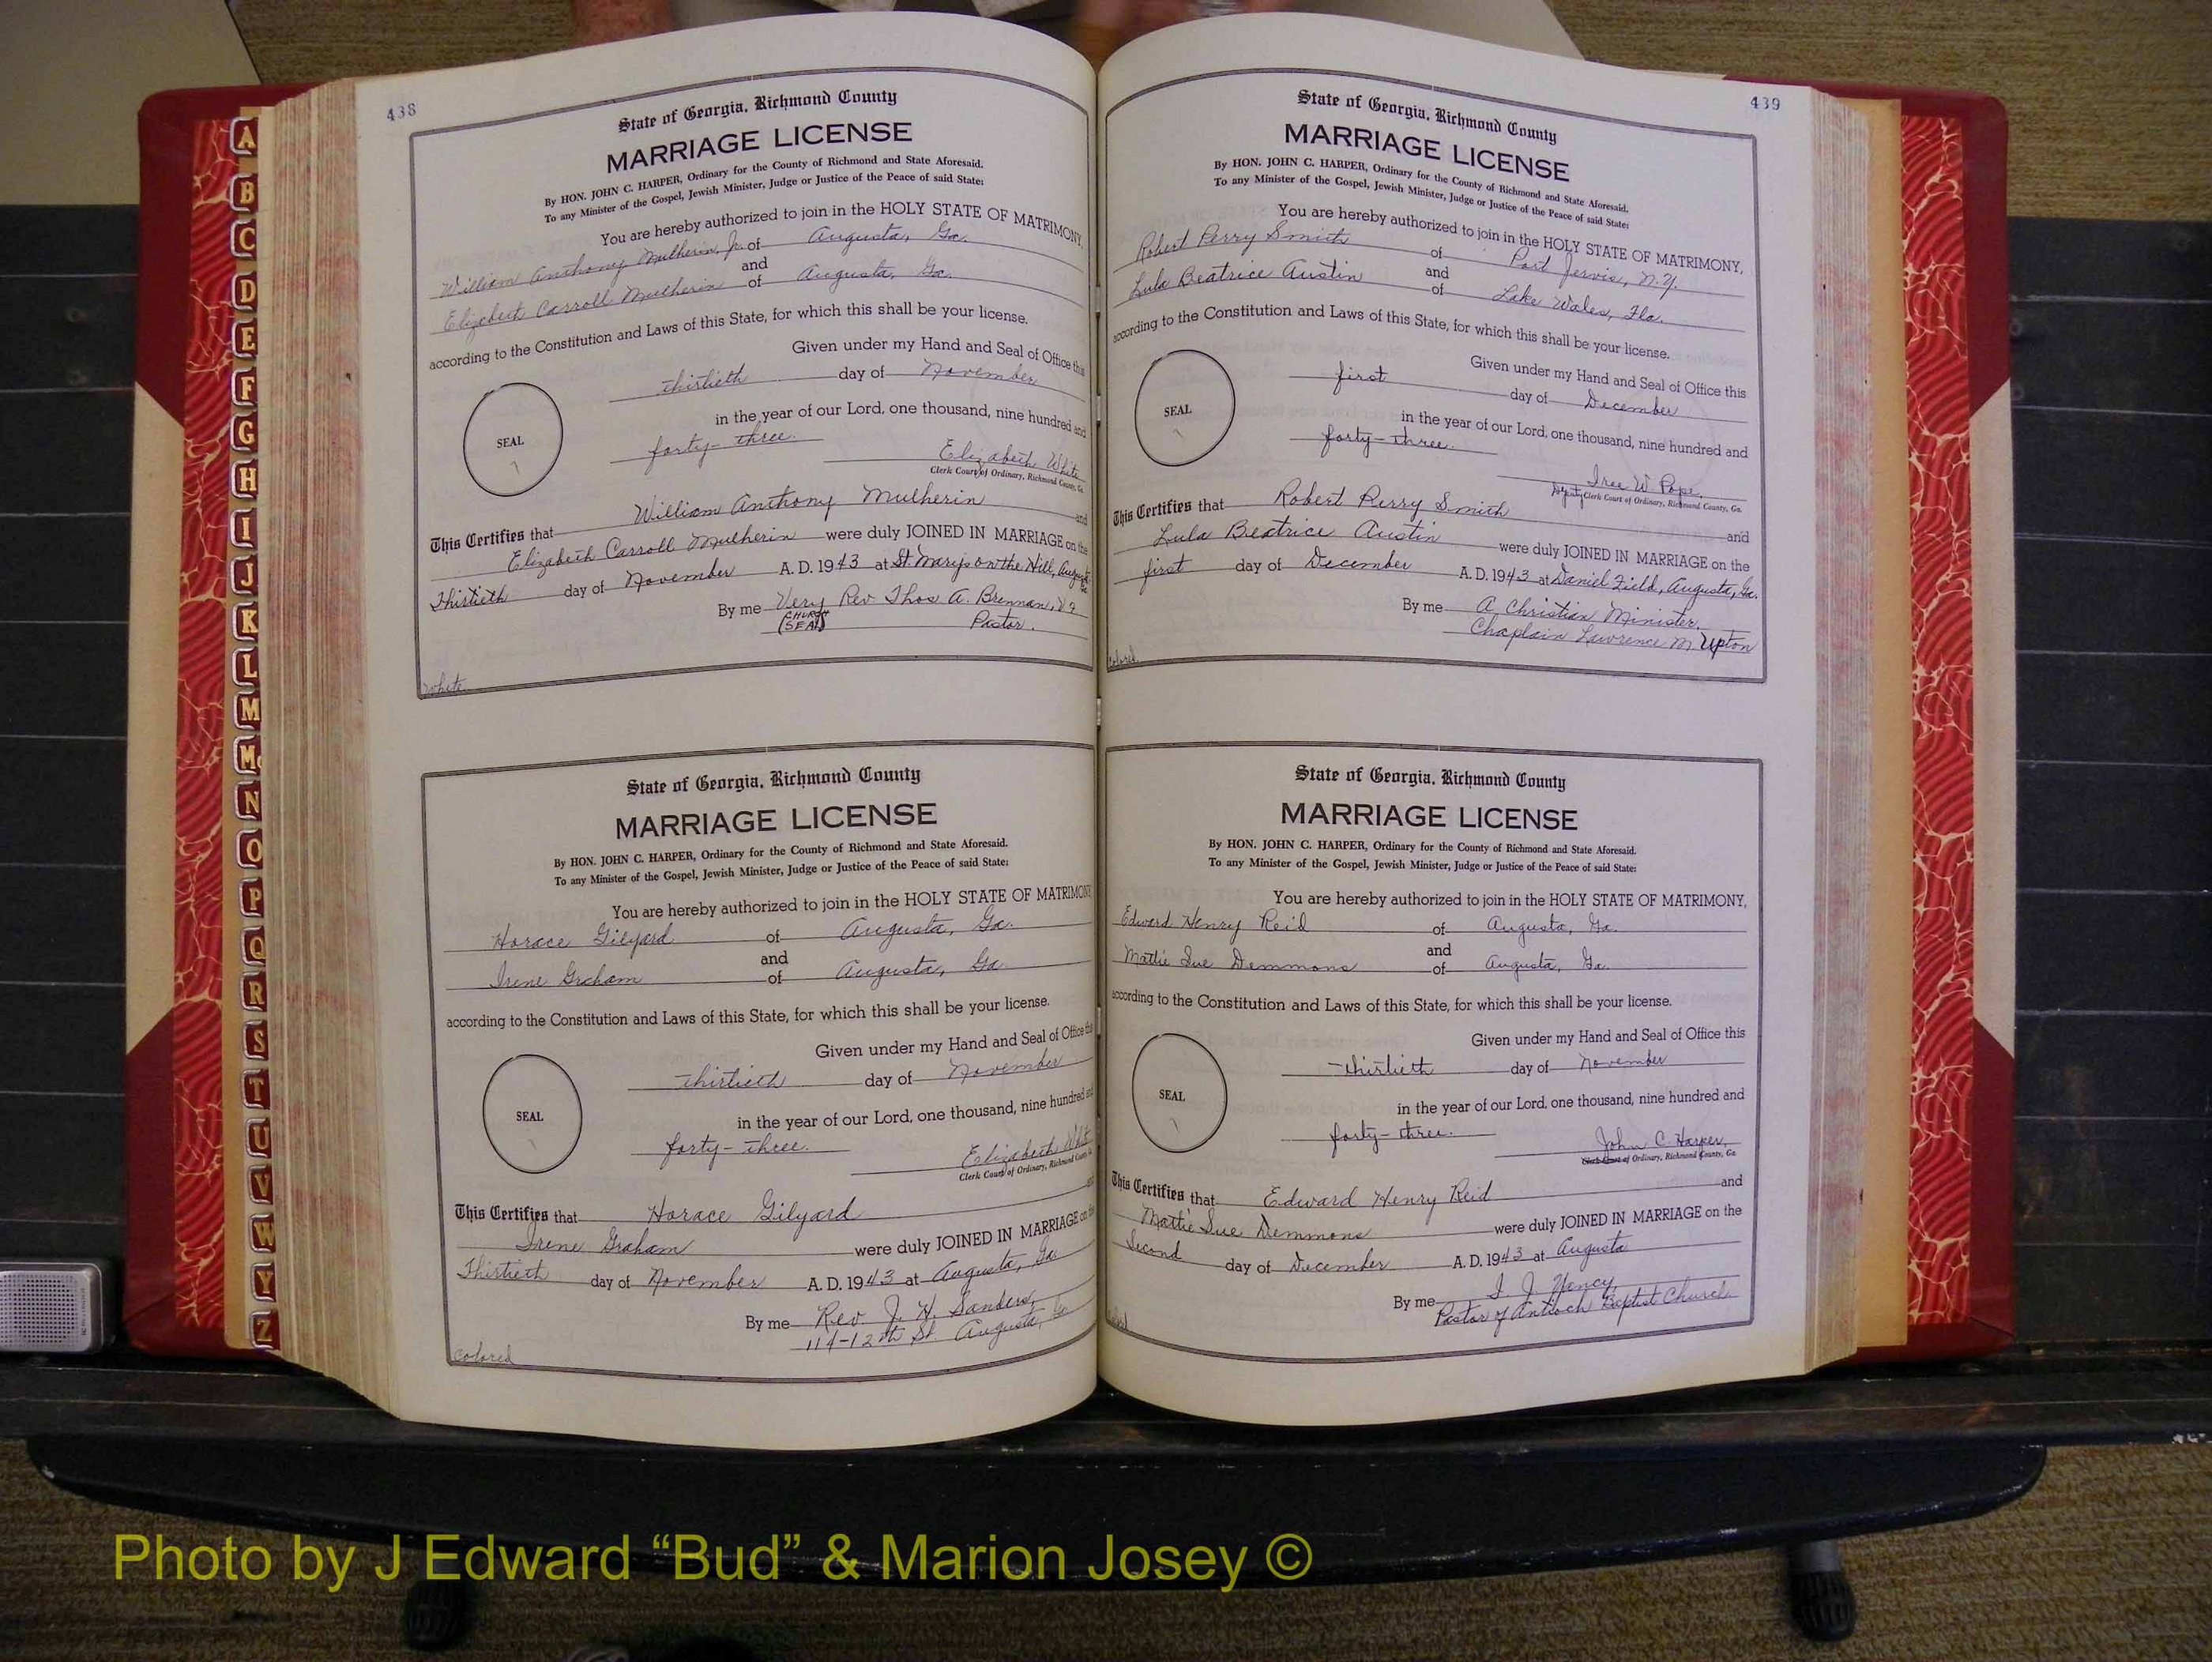 438
State of Georgia, Richmond County
MARRIAGE LICENSE
By HON. JOHN C. HARPER, Ordinary for the County of Richmond and State Aforesaid.
To any Minister of the Gospel, Jewish Minister, Judge or Justice of the Peace of said State:
You are hereby authorized to join in the HOLY STATE OF MATRIMONY,
William Anthony Mulherin, Jr. of Augusta, Ga.
and
Elizabeth Carroll Mulherin of Augusta, Ga.
according to the Constitution and Laws of this State, for which this shall be your license.
Given under my Hand and Seal of Office this
thirtieth day of November
in the year of our Lord, one thousand, nine hundred and
SEAL
forty-three.
Elizabeth White
Clerk Court of Ordinary, Richmond County, Ga.
This Certifies that William Anthony Mulherin and
Elizabeth Carroll Mulherin were duly JOINED IN MARRIAGE on the
Thirtieth day of November A. D. 1943 at St. Mary's on the Hill, Augusta
By me Very Rev. Thos A. Brennan,
(CHURCH SEAL) Pastor.
White
State of Georgia, Richmond County
MARRIAGE LICENSE
By HON. JOHN C. HARPER, Ordinary for the County of Richmond and State Aforesaid.
To any Minister of the Gospel, Jewish Minister, Judge or Justice of the Peace of said State:
You are hereby authorized to join in the HOLY STATE OF MATRIMONY
Horace Gilyard of Augusta, Ga.
and
Irene Graham of Augusta, Ga.
according to the Constitution and Laws of this State, for which this shall be your license.
Given under my Hand and Seal of Office this
thirtieth day of November
in the year of our Lord, one thousand, nine hundred and
SEAL
forty-three.
Elizabeth White
Clerk Court of Ordinary, Richmond County
This Certifies that Horace Gilyard and
Irene Graham were duly JOINED IN MARRIAGE on the
Thirtieth day of November A. D. 1943 at Augusta, Ga
By me Rev. J. H. Sanders,
114-12th St. Augusta, Ga
colored
439
State of Georgia, Richmond County
MARRIAGE LICENSE
By HON. JOHN C. HARPER, Ordinary for the County of Richmond and State Aforesaid.
To any Minister of the Gospel, Jewish Minister, Judge or Justice of the Peace of said State:
You are hereby authorized to join in the HOLY STATE OF MATRIMONY,
Robert Perry Smith of Port Jervis, N.Y.
and
Lula Beatrice Austin of Lake Wales, Fla.
according to the Constitution and Laws of this State, for which this shall be your license.
Given under my Hand and Seal of Office this
first day of December
in the year of our Lord, one thousand, nine hundred and
SEAL
forty-three.
W Pope,
Deputy Clerk Court of Ordinary, Richmond County, Ga.
This Certifies that Robert Perry Smith and
Lula Beatrice Austin were duly JOINED IN MARRIAGE on the
first day of December A. D. 1943 at Daniel Field, Augusta, Ga.
By me A Christian Minister,
Chaplain Lawrence M. Upton
colored
State of Georgia, Richmond County
MARRIAGE LICENSE
By HON. JOHN C. HARPER, Ordinary for the County of Richmond and State Aforesaid.
To any Minister of the Gospel, Jewish Minister, Judge or Justice of the Peace of said State:
You are hereby authorized to join in the HOLY STATE OF MATRIMONY,
Edward Henry Reid of Augusta, Ga.
and
Mattie Sue Demmons of Augusta, Ga.
according to the Constitution and Laws of this State, for which this shall be your license.
Given under my Hand and Seal of Office this
thirtieth day of November
in the year of our Lord, one thousand, nine hundred and
SEAL
forty-three.
John C. Harper,
Clerk Court of Ordinary, Richmond County, Ga.
This Certifies that Edward Henry Reid and
Mattie Sue Demmons were duly JOINED IN MARRIAGE on the
Second day of December A. D. 1943 at Augusta
By me J. Yancy,
Pastor of Antioch Baptist Church
A
B
C
D
E
F
G
H
I
J
K
L
M
Mc
N
O
P
Q
R
S
T
U
V
W
Y
Z
Photo by J Edward “Bud” & Marion Josey ©